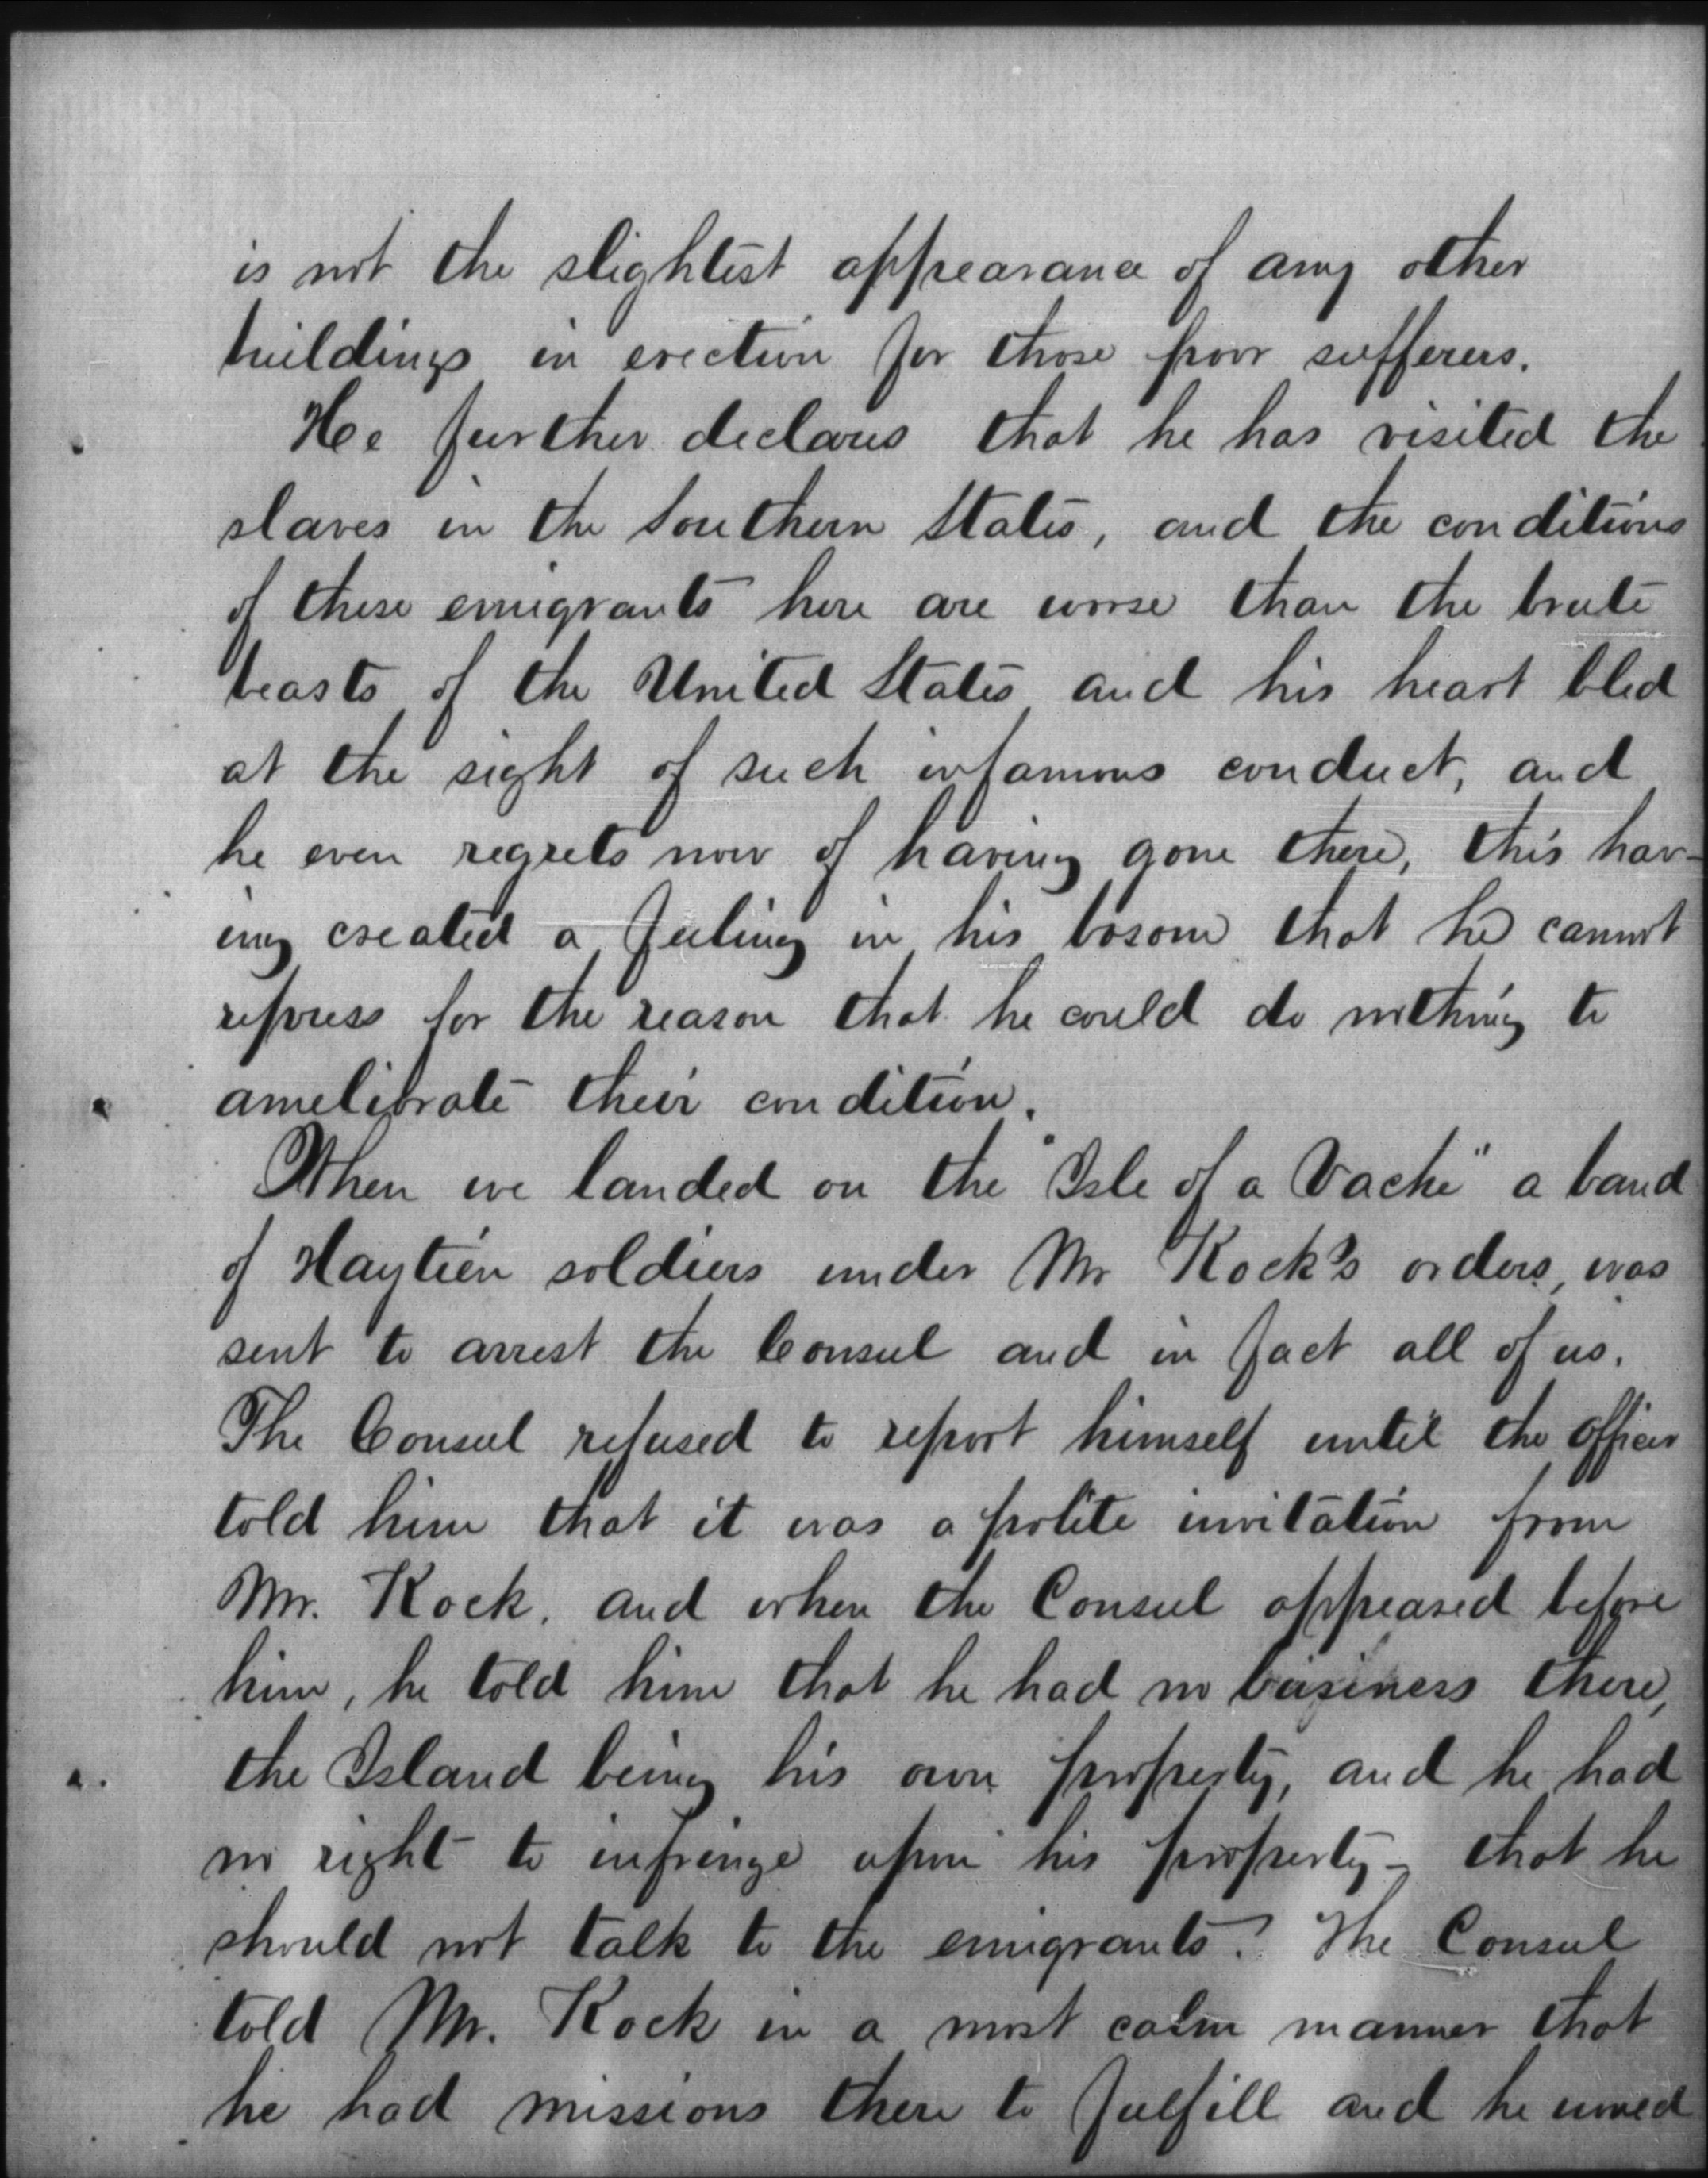 is not the slightest appearance of any other
buildings in erection for those poor sufferers.
He further declares that he has visited the
slaves in the Southern States, and the conditions
of these emigrants here are worse than the brute
beasts of the United States and his heart bled
at the sight of such infamous conduct, and
he even regrets now of having gone there, this hav-
ing created a feeling in his bosom that he cannot
repress for the reason that he could do nothing to
ameliorate their condition.
When we landed on the "Isle of a Vache" a band
of Haytien soldiers under Mr Kock's orders, was
sent to arrest the Consul and in fact all of us.
The Consul refused to report himself until the officer
told him that it was a polite invitation from
Mr. Kock, and when the Consul appeared before
him, he told him that he had no business there,
the Island being his own property, and he had
no right to infringe upon his property - that he
should not talk to the emigrants. The Consul
told Mr. Kock in a most calm manner that
he had missions there to fulfill and he